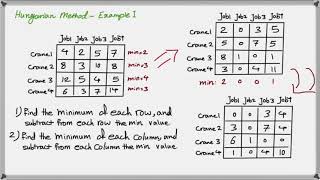 Hungarian Method - Example 1
Job1 Job2 Job3 Job4
Crane1 4 2 5 7 min=2
Crane2 8 3 10 8 min=3
Crane3 12 5 4 5 min=4
Crane4 6 3 7 14 min=3
Job1 Job2 Job3 Job4
Crane1 2 0 3 5
Crane2 5 0 7 5
Crane3 8 1 0 1
Crane4 3 0 4 11
min: 2 0 0 1
1) Find the minimum of each row, and
subtract from each row the min value.
2) Find the minimum of each column, and
subtract from each column the min value.
Job1 Job2 Job3 Job4
Crane1 0 0 3 4
Crane2 3 0 7 4
Crane3 6 1 0 0
Crane4 1 0 4 10